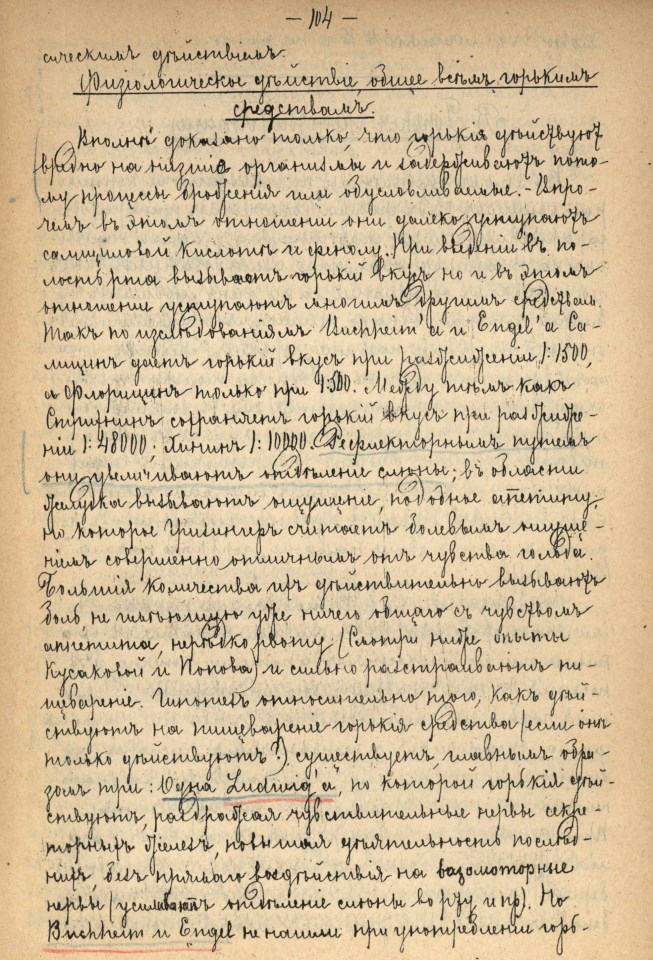 — 104 —
ическимъ дѣйствіемъ.
Физіологическое дѣйствіе, общее всѣмъ горькимъ
средствамъ.
Вполнѣ доказано только, что горькія дѣйствуютъ
вредно на низшіе организмы и задерживаютъ пото-
му процессы броженія ими обусловливаемые. - Впро-
чемъ въ этомъ отношеніи они далеко уступаютъ
салициловой кислотѣ и фенолу. При введеніи въ по-
лость рта вызываютъ горькій вкусъ но и въ этомъ
отношеніи уступаютъ многимъ другимъ средствам.
Такъ по изслѣдованіямъ Buchheim'a и Engel'a Са-
лицинъ даетъ горькій вкусъ при разжиженіи 1:1500,
а Флорицинъ только при 1:500. Между тѣмъ какъ
Стрихнинъ сохраняетъ горькій вкусъ при разжиже-
ніи 1:48000; Хининъ 1:10000. Рефлекторнымъ путемъ
они увеличиваютъ отдѣленіе слюны; въ области
желудка вызываютъ ощущеніе, подобное аппетиту,
но которое Гризингеръ считаетъ болевымъ ощуще-
ніемъ совершенно отличнымъ отъ чувства голода.
Большія количества ихъ дѣйствительно вызываютъ
боль, не имѣющую уже ничего общаго съ чувствомъ
аппетита, нерѣдко рвоту (Смотри ниже опыты
Кусаковой и Попова) и сильно разстраиваютъ пи-
щевареніе. Гипотезъ относительно того, какъ дѣй-
ствуютъ на пищевареніе горькія средства (если онѣ
только дѣйствуютъ?) существуетъ главнымъ обра-
зомъ три: Одна Ludwig'a, по которой горькія дѣй-
ствуютъ, раздражая чувствительные нервы секре-
торныхъ железъ, повышая дѣятельность послѣд-
нихъ, безъ прямаго воздѣйствія на вазомоторные
нервы (усиливаютъ отдѣленіе слюны во рту и пр). Но
Buchheim и Engel не нашли при употребленіи горь-